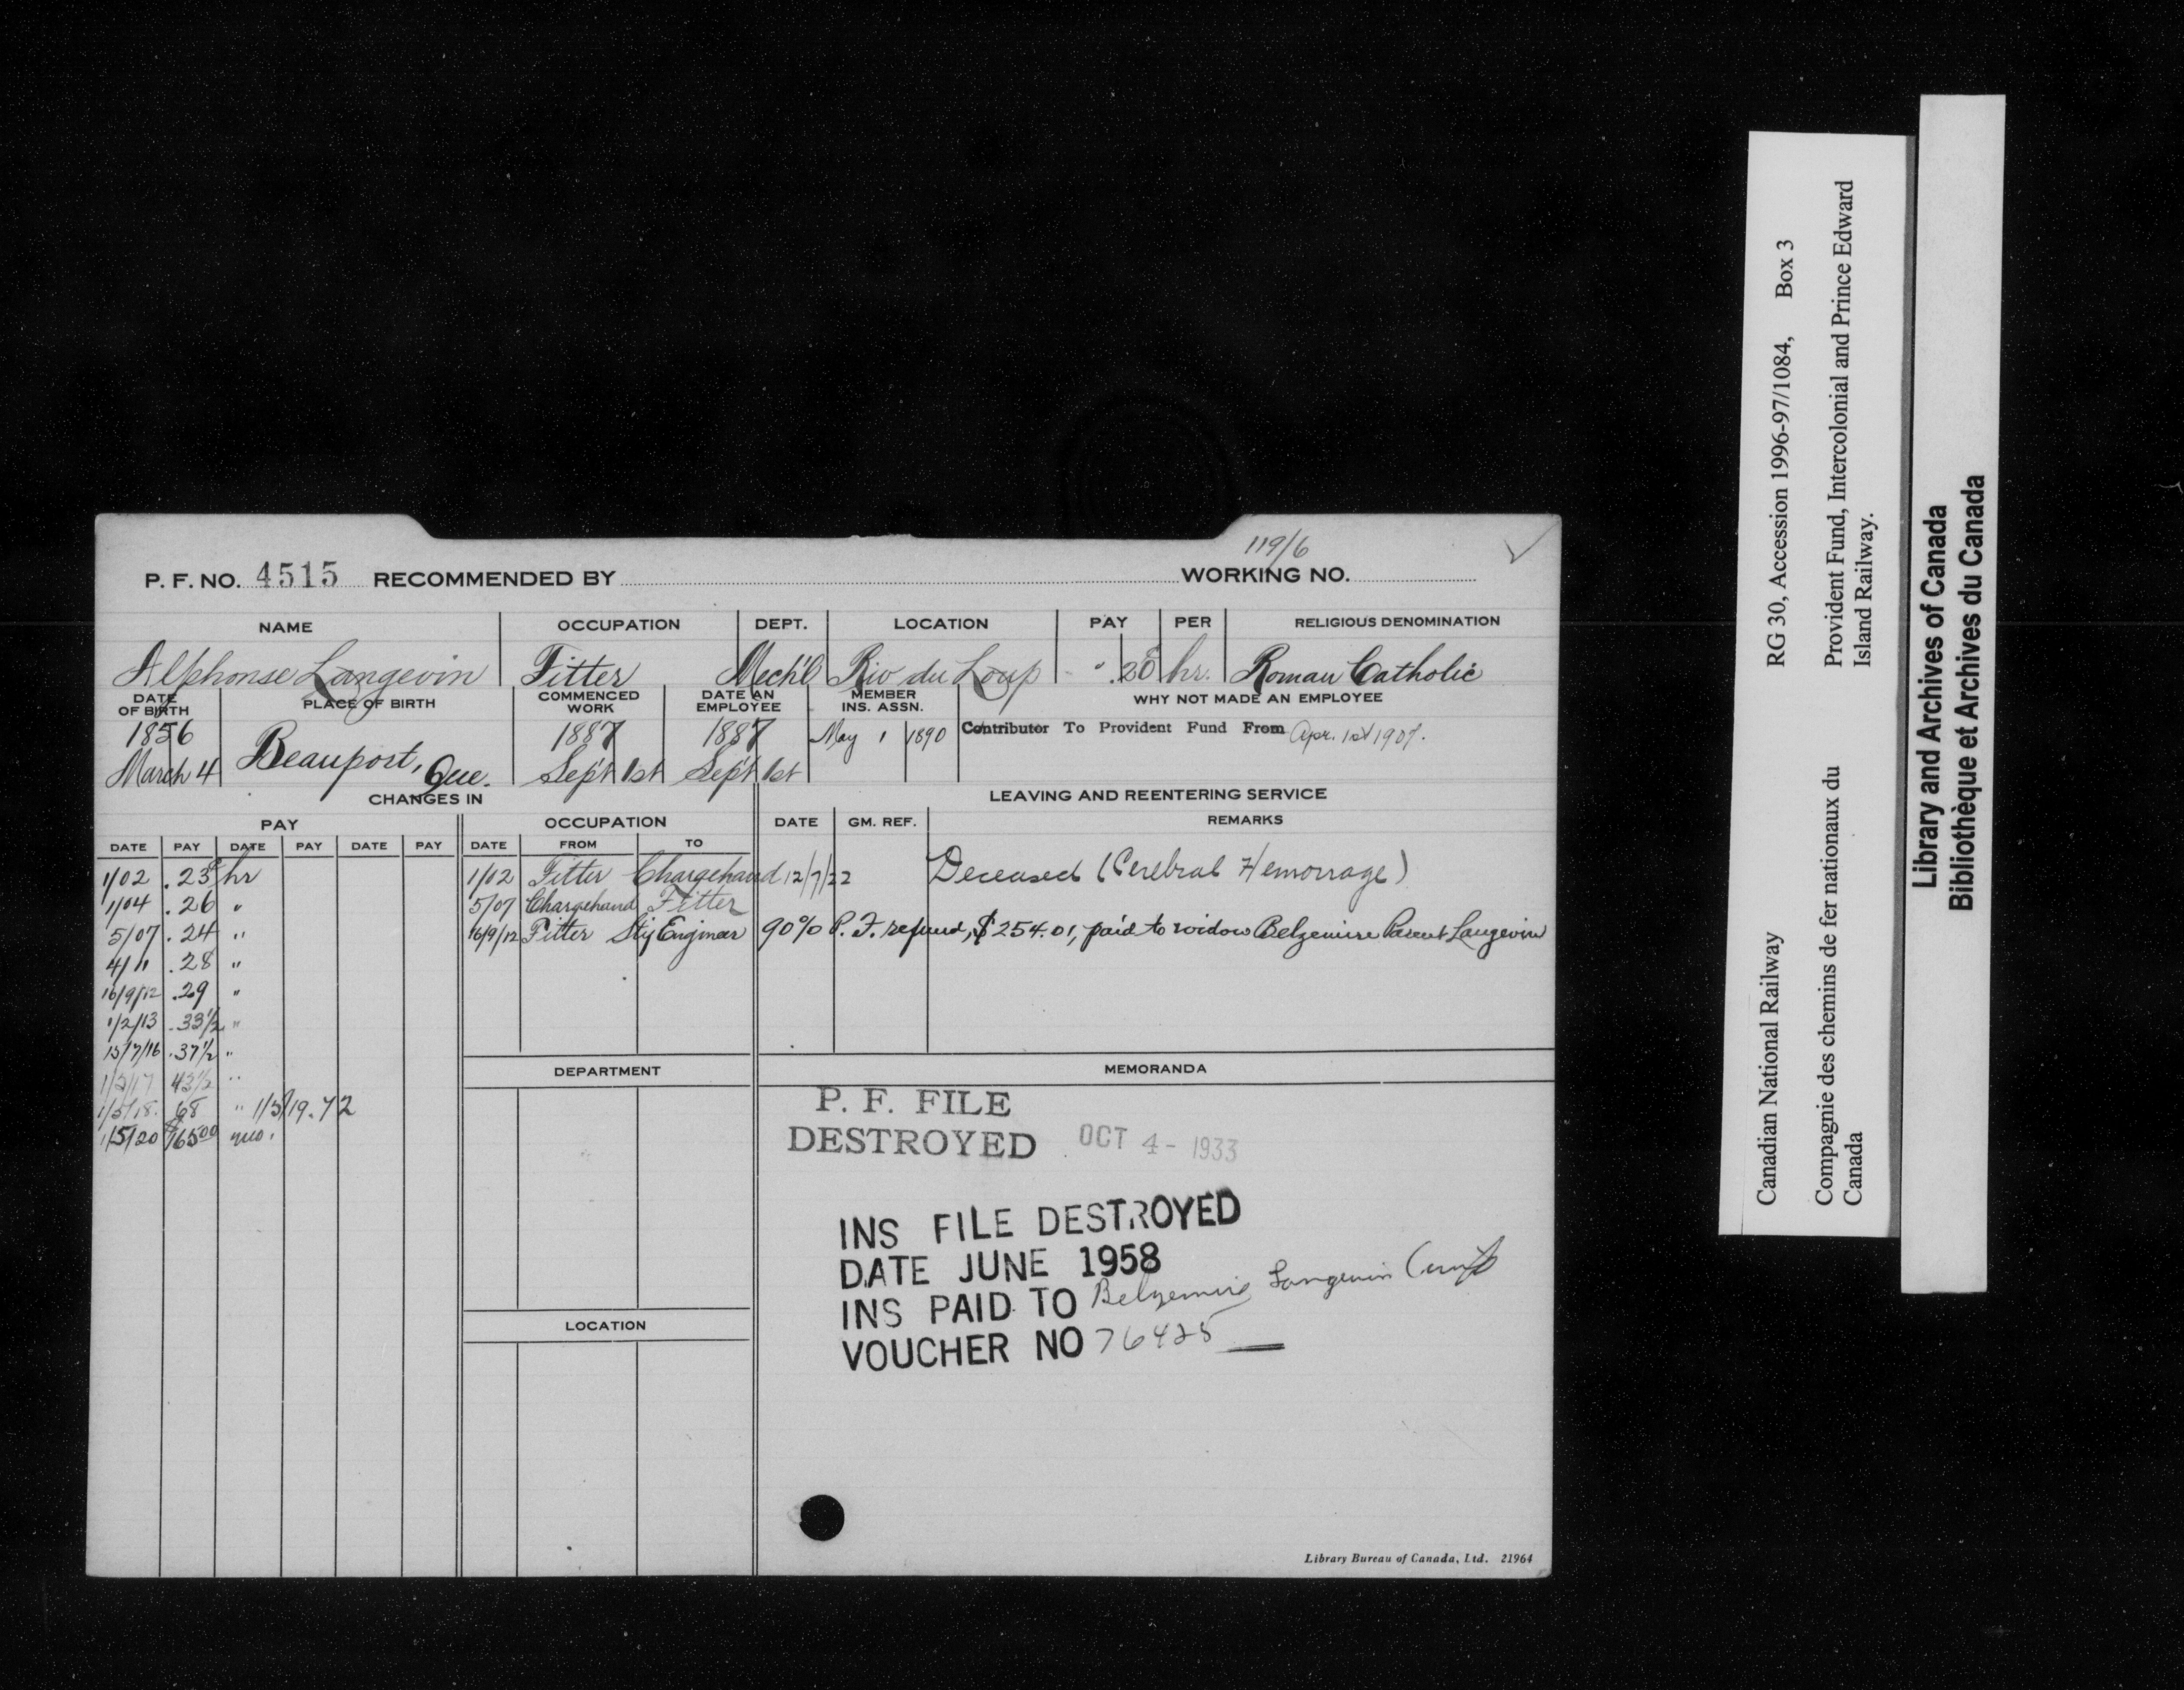 119/6
P. F. NO. 4515 RECOMMENDED BY WORKING NO.
NAME OCCUPATION DEPT. LOCATION PAY PER RELIGIOUS DENOMINATION
Alphonse Langevin Fitter Mech'l Riv du Loup .20 hr. Roman Catholic
DATE OF BIRTH PLACE OF BIRTH COMMENCED WORK DATE AN EMPLOYEE MEMBER INS. ASSN. WHY NOT MADE AN EMPLOYEE
1856 1887 1887 May 1 1890 Contributor To Provident Fund From Apr. 1st 1907.
March 4 Beauport, Que. Sept 1st Sept 1st
CHANGES IN LEAVING AND REENTERING SERVICE
PAY OCCUPATION DATE GM. REF. REMARKS
DATE PAY DATE PAY DATE PAY DATE FROM TO
1/02 .23 hr 1/02 Fitter Chargehand 12/7/22 Deceased (Cerebral Hemorrage)
1/04 .26 " 5/07 Chargehand Fitter
5/07 .24 " 16/9/12 Fitter Sty Engineer 90% P. F. refund, $254.01, paid to widow Belzemire Parent Langevin
4/11 .28 "
16/9/12 .29 "
1/2/13 .33½ "
15/7/16 .37½ "
1/3/17 43½ "
1/5/18. 68 " 1/5/19 .72
1/5/20 $165.00 mo.
DEPARTMENT MEMORANDA
P. F. FILE
DESTROYED OCT 4 - 1933
INS FILE DESTROYED
DATE JUNE 1958
INS PAID TO Belzemire Langevin
VOUCHER NO 76428
LOCATION
Library Bureau of Canada, Ltd. 21964
Canadian National Railway RG 30, Accession 1996-97/1084, Box 3
Compagnie des chemins de fer nationaux du Canada
Provident Fund, Intercolonial and Prince Edward Island Railway.
Library and Archives of Canada
Bibliothèque et Archives du Canada